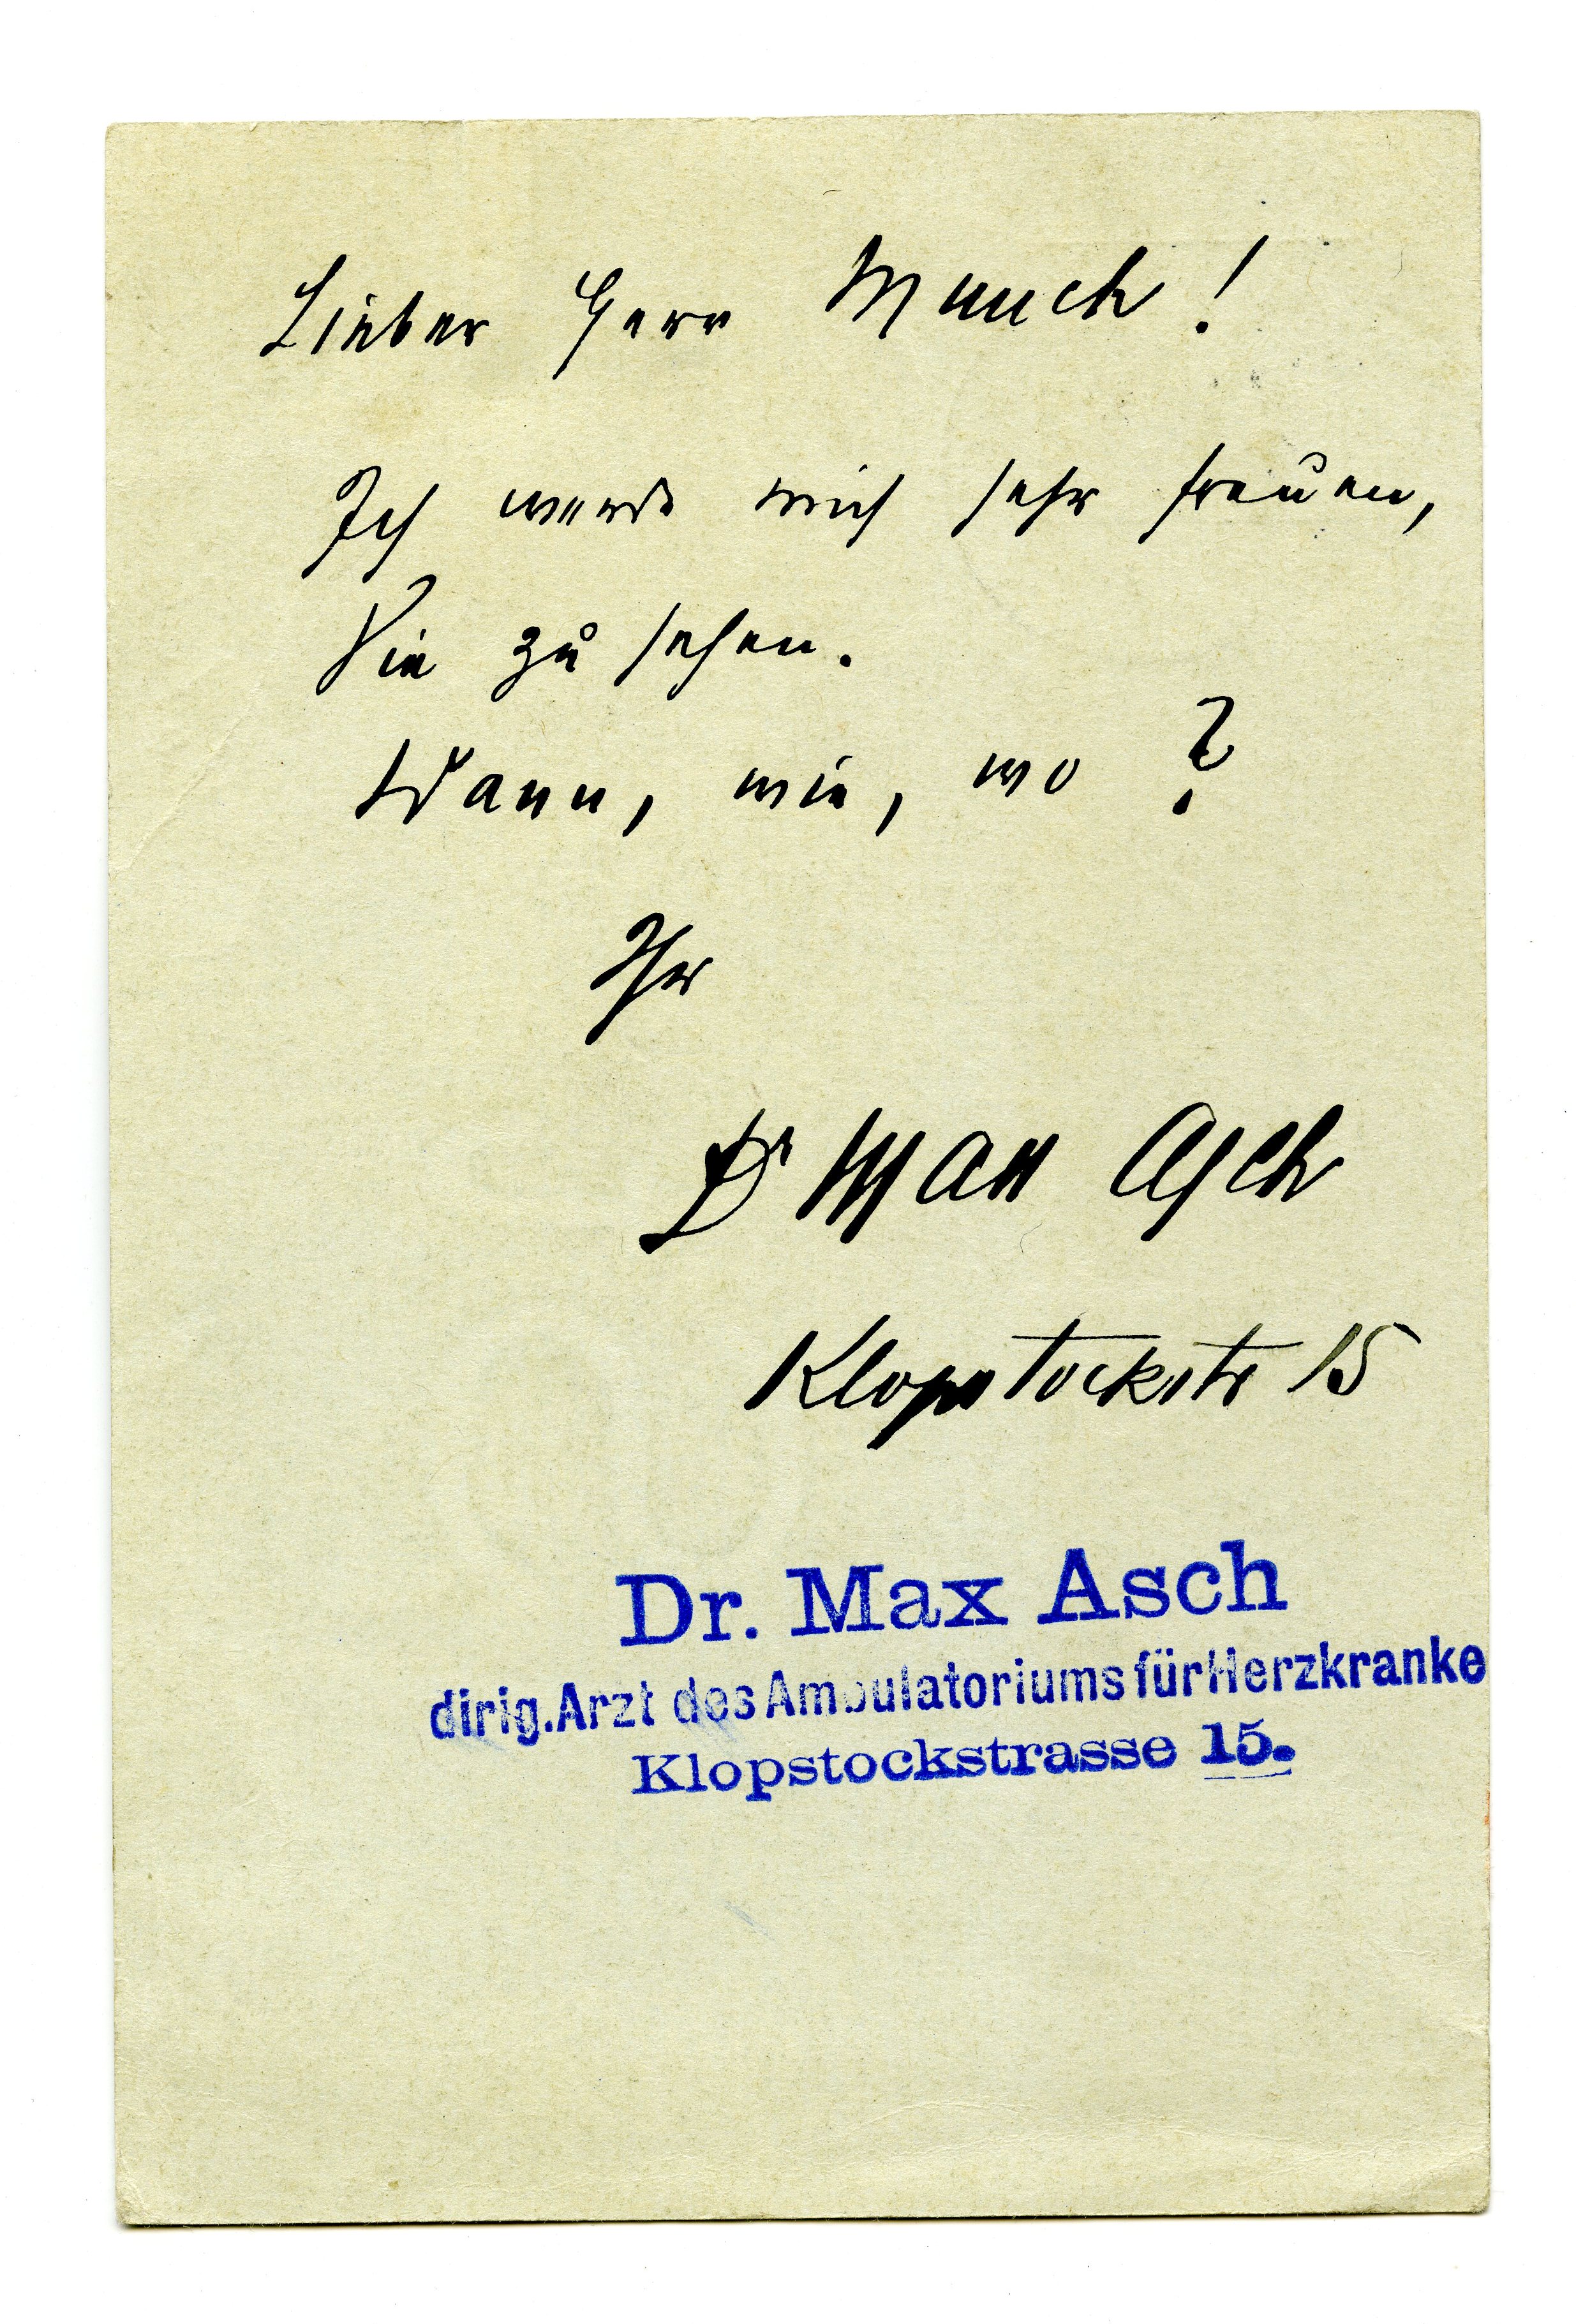 Lieber Herr Munch!
Ich werde mich sehr freuen,
Sie zu sehen.
Wann, wie, wo?
Ihr
Dr Max Asch
Klopstockstr 15
Dr. Max Asch
dirig. Arzt des Ambulatoriums für Herzkranke
Klopstockstrasse 15.